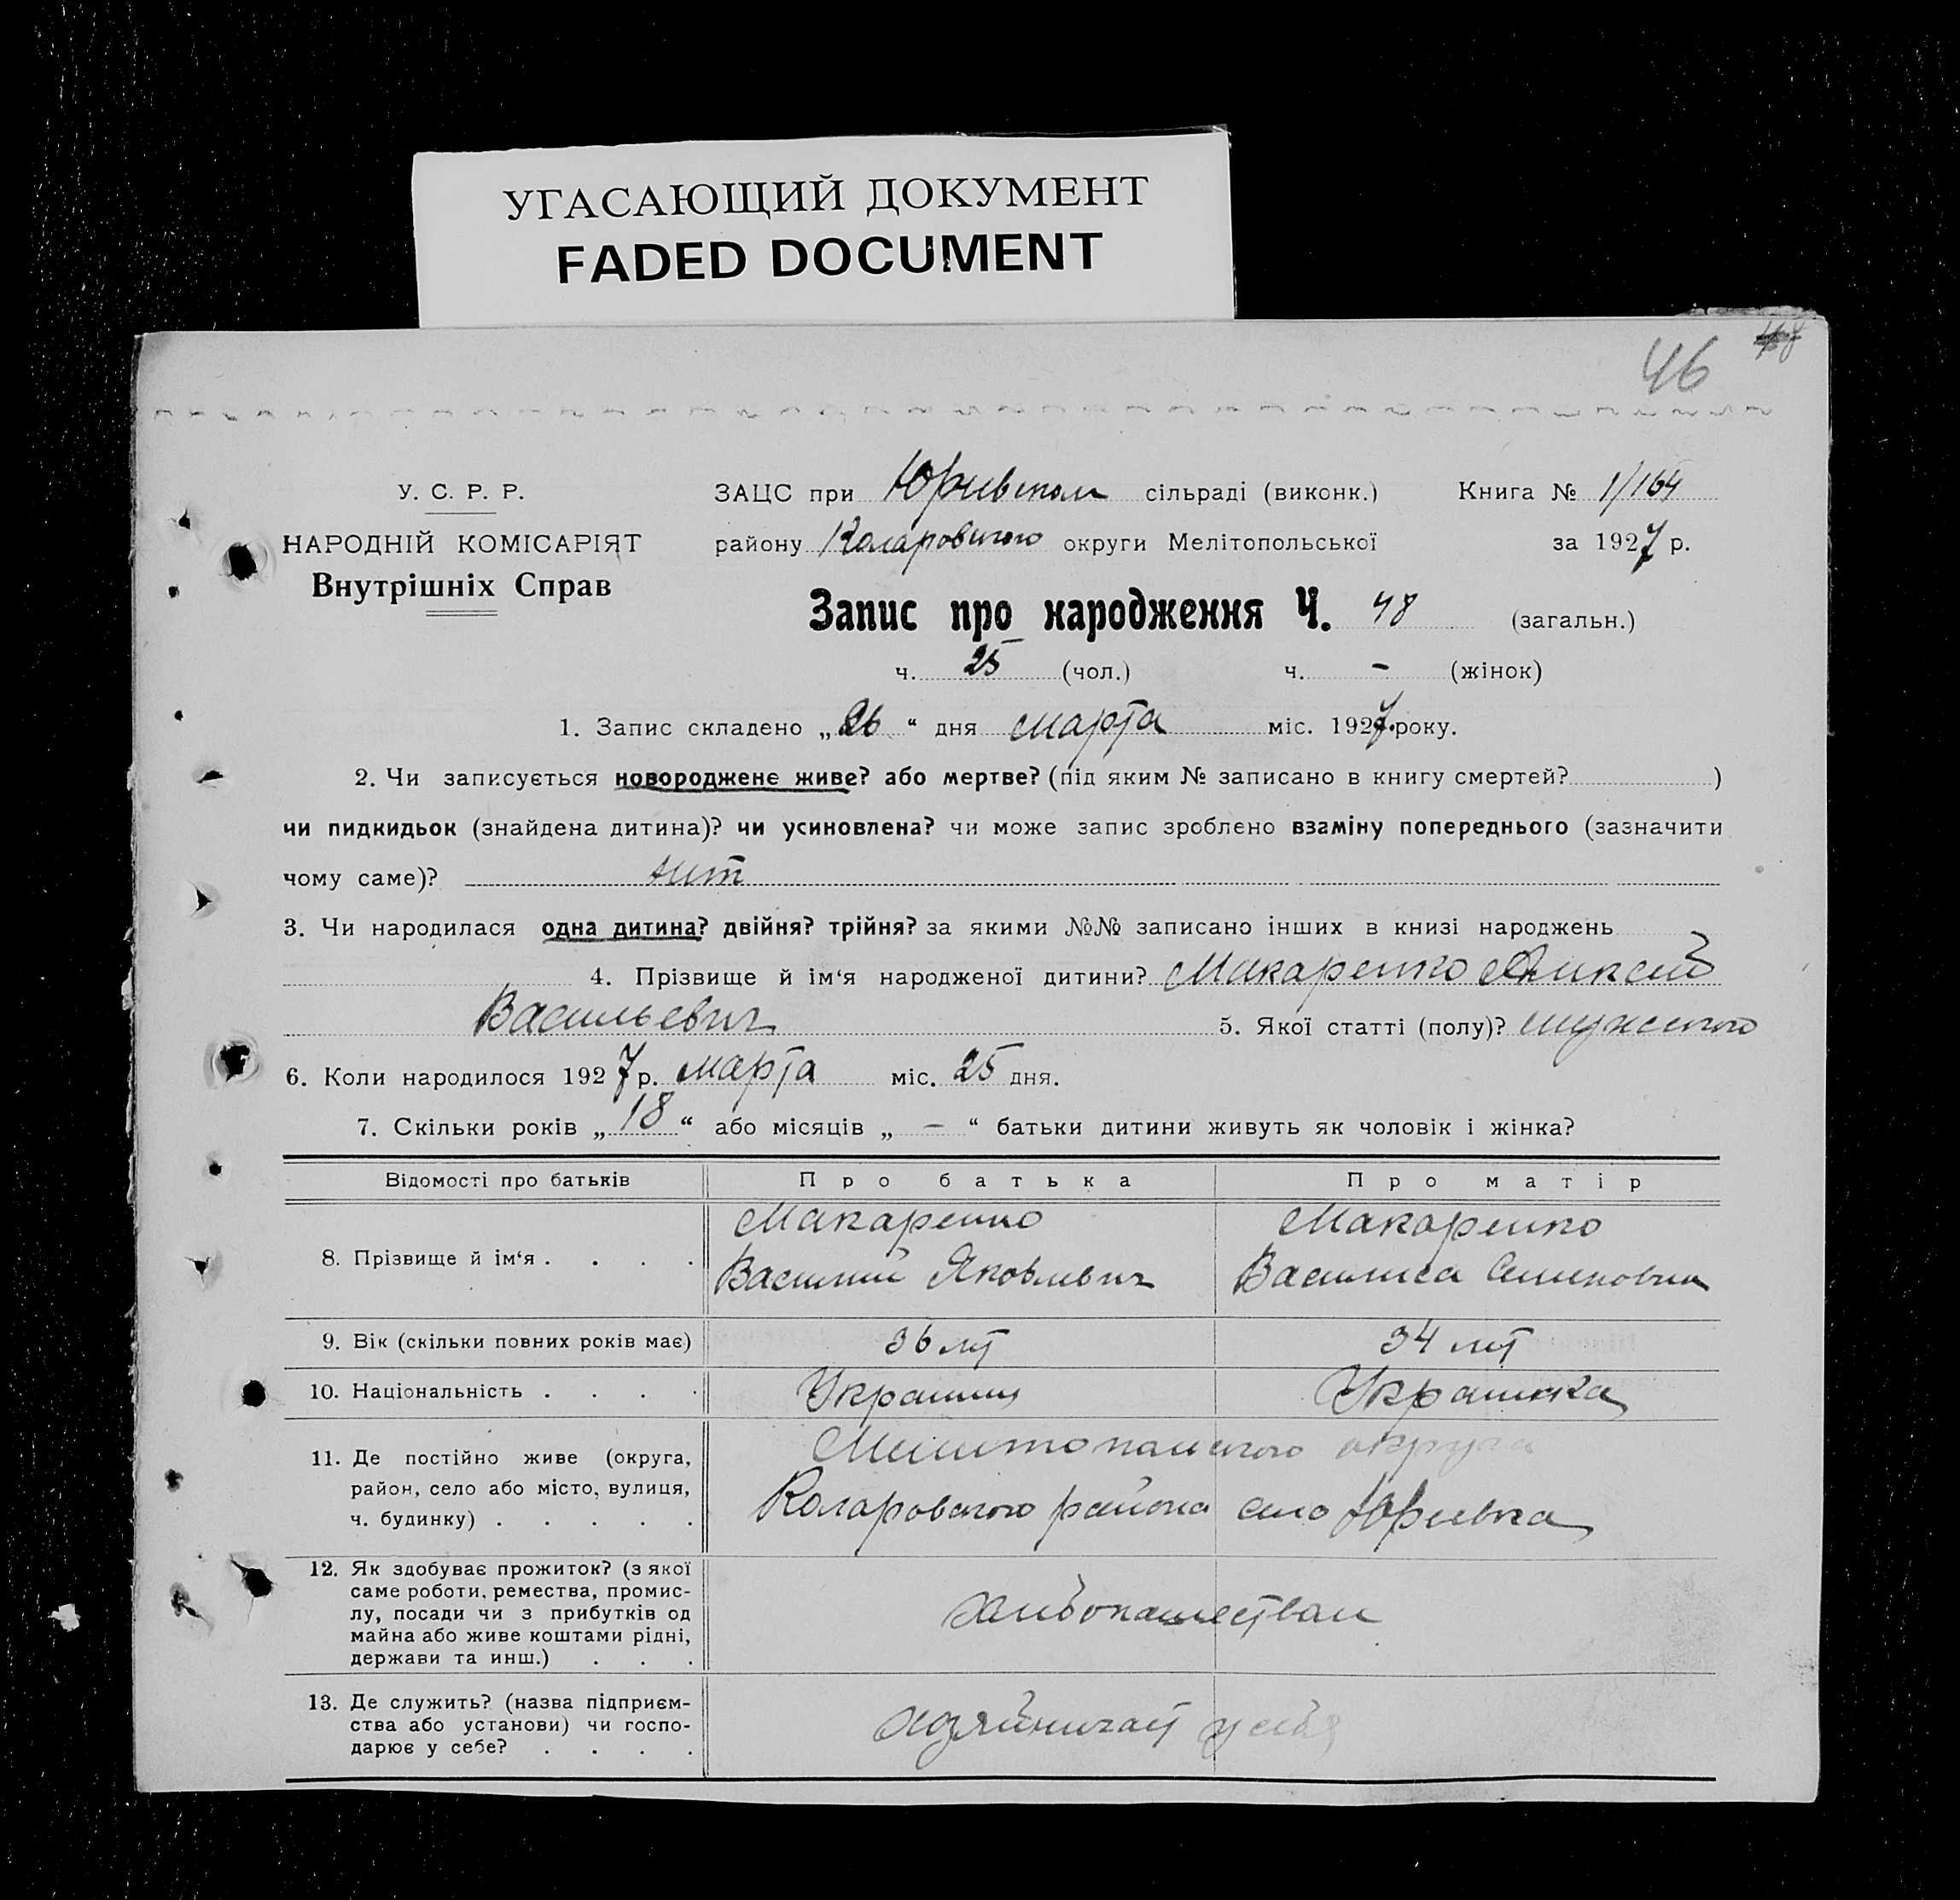 УГАСАЮЩИЙ ДОКУМЕНТ
FADED DOCUMENT
46
У. С. Р. Р.
НАРОДНІЙ КОМІСАРІЯТ
Внутрішніх Справ
ЗАЦС при Юрьевском сільраді (виконк.) Книга № 1/164
району Коларовского округи Мелітопольської за 1927 р.
Запис про народження Ч. 48 (загальн.)
ч. 25 (чол.) ч. - (жінок)
1. Запис складено „26“ дня марта міс. 1927 року.
2. Чи записується новороджене живе? або мертве? (під яким № записано в книгу смертей? )
чи пидкидьок (знайдена дитина)? чи усиновлена? чи може запис зроблено взаміну попереднього (зазначити
чому саме)? нет
3. Чи народилася одна дитина? двійня? трійня? за якими №№ записано інших в книзі народжень
4. Прізвище й ім‘я народженої дитини? Макаренко Алексей
Васильевич 5. Якої статті (полу)? мужского
6. Коли народилося 1927 р. марта міс. 25 дня.
7. Скільки років „18“ або місяців „ – “ батьки дитини живуть як чоловік і жінка?
Відомості про батьків Про батька Про матір
8. Прізвище й ім‘я . . . . Макаренко Василий Яковлевич Макаренко Василиса Семеновна
9. Вік (скільки повних років має) 36 лет 34 лет
10. Національність . . . . Украинец Украинка
11. Де постійно живе (округа,
район, село або місто, вулиця,
ч. будинку) . . . . .
Мелитопольского округа
Коларовского района село Юрьевка
12. Як здобуває прожиток? (з якої
саме роботи, ремества, промис-
лу, посади чи з прибутків од
майна або живе коштами рідні,
держави та инш.) . . .
хлебопашеством
13. Де служить? (назва підприєм-
ства або установи) чи госпо-
дарює у себе? . . . .
хозяйничает у себя